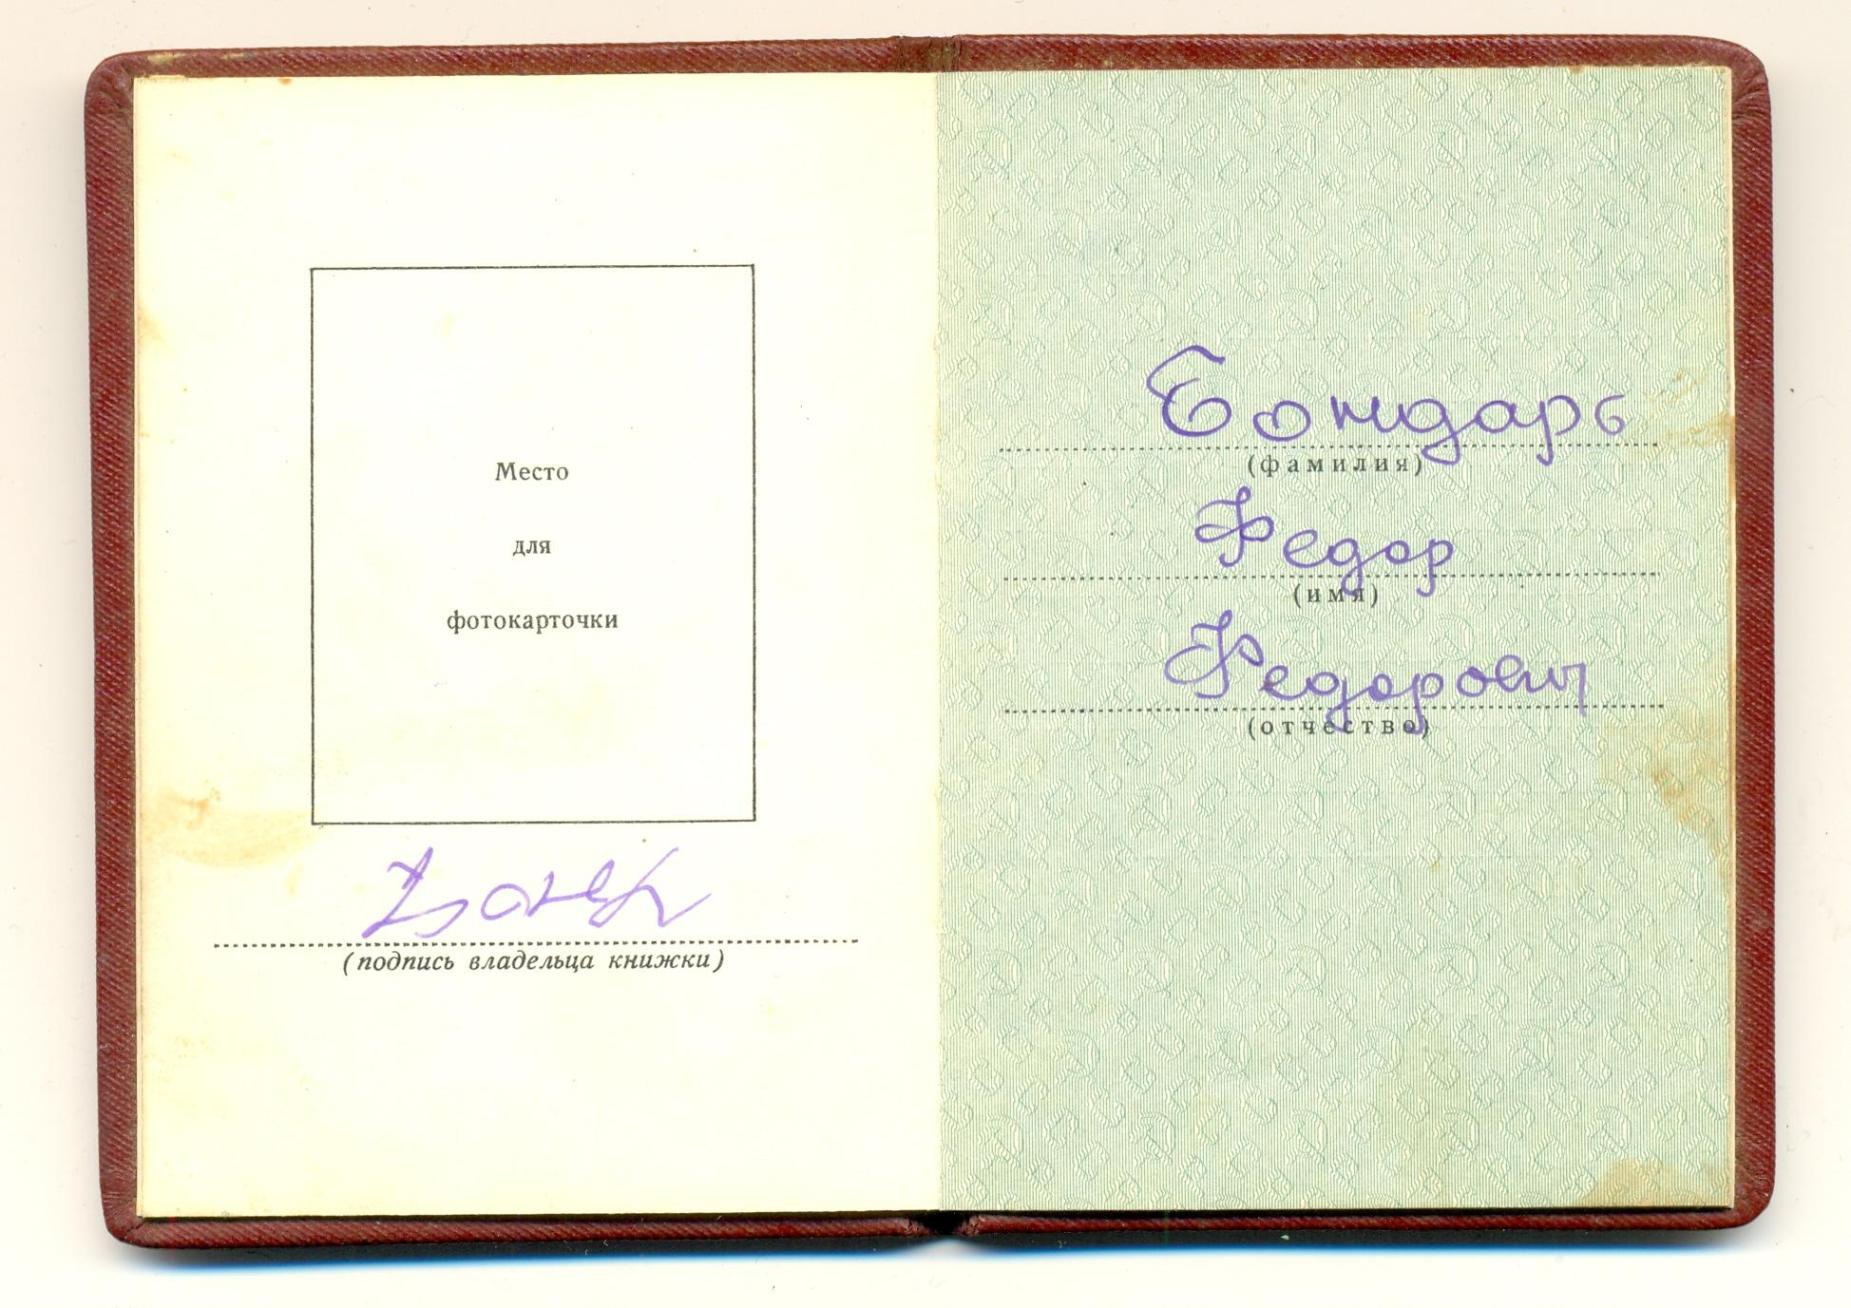 Место
для
фотокарточки
(подпись владельца книжки)
Бондарь
(фамилия)
Федор
(имя)
Федорович
(отчество)